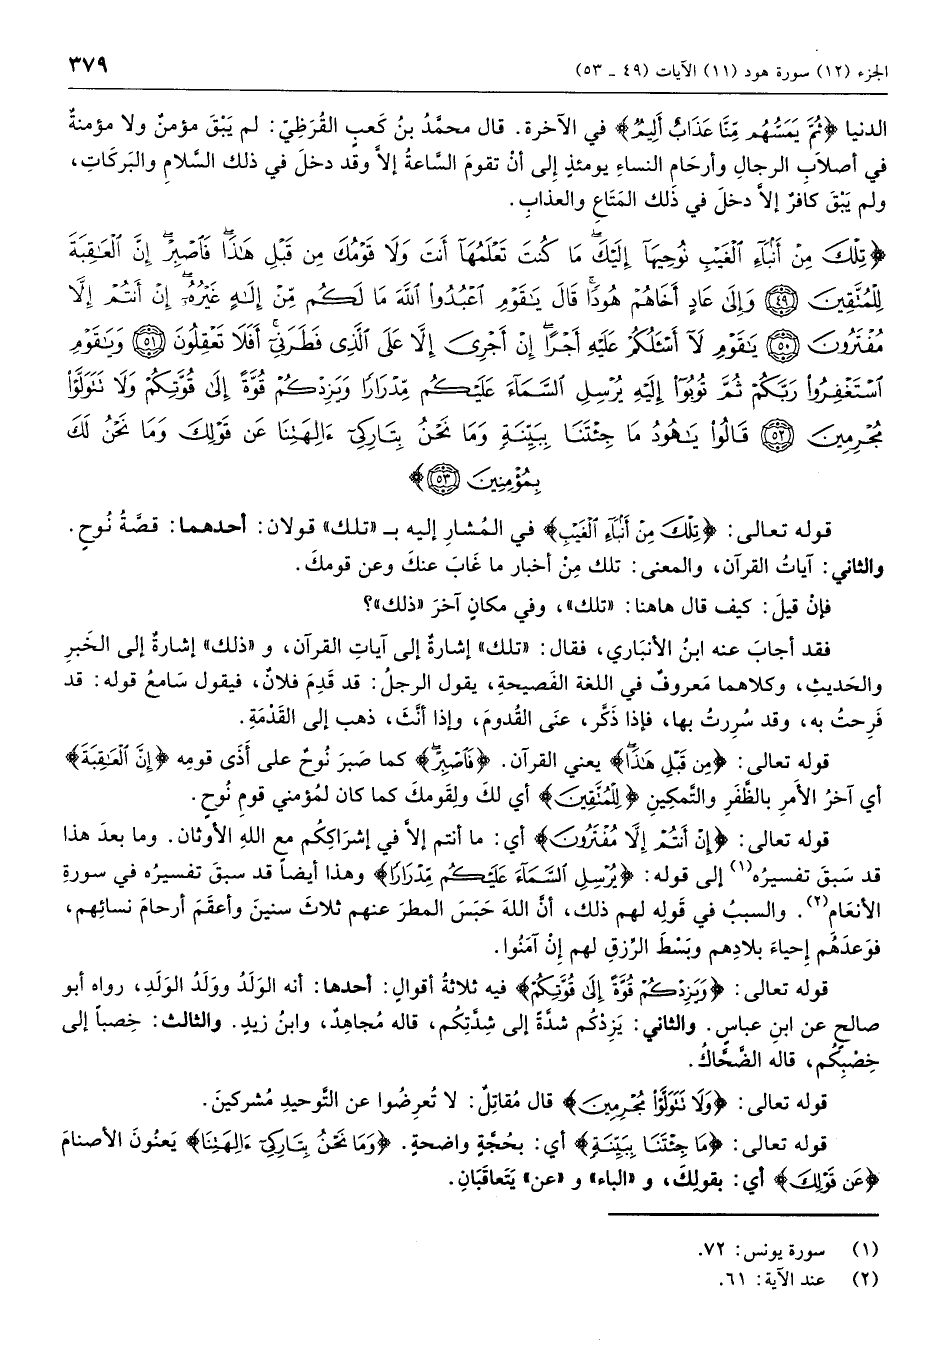 الجزء (١٢) سورة هود (١١) الآيات (٤٩ ـ ٥٣)
٣٧٩
الدنيا ﴿ثُمَّ يَمَسُّهُم مِّنَّا عَذَابٌ أَلِيمٌ﴾ في الآخرة. قال محمَّدُ بنُ كَعبٍ القُرَظِيّ: لم يَبْقَ مؤمنٌ ولا مؤمنةٌ
في أصلاَبِ الرجالِ وأرحَام النساءِ يومئذٍ إلى أنْ تقومَ السَّاعةُ إلاَّ وقد دخلَ في ذلك السَّلامِ والبَركَاتِ،
ولم يَبْقَ كافرٌ إلاَّ دخلَ في ذَلك المَتَاعِ والعذابِ.
﴿تِلْكَ مِنْ أَنۢبَآءِ ٱلْغَيْبِ نُوحِيهَآ إِلَيْكَۖ مَا كُنتَ تَعْلَمُهَآ أَنتَ وَلَا قَوْمُكَ مِن قَبْلِ هَٰذَاۖ فَٱصْبِرْۖ إِنَّ ٱلْعَٰقِبَةَ
لِلْمُتَّقِينَ ٤٩ وَإِلَىٰ عَادٍ أَخَاهُمْ هُودًاۚ قَالَ يَٰقَوْمِ ٱعْبُدُوا۟ ٱللَّهَ مَا لَكُم مِّنْ إِلَٰهٍ غَيْرُهُۥٓۖ إِنْ أَنتُمْ إِلَّا
مُفْتَرُونَ ٥٠ يَٰقَوْمِ لَآ أَسْـَٔلُكُمْ عَلَيْهِ أَجْرًاۖ إِنْ أَجْرِىَ إِلَّا عَلَى ٱلَّذِى فَطَرَنِىٓۚ أَفَلَا تَعْقِلُونَ ٥١ وَيَٰقَوْمِ
ٱسْتَغْفِرُوا۟ رَبَّكُمْ ثُمَّ تُوبُوٓا۟ إِلَيْهِ يُرْسِلِ ٱلسَّمَآءَ عَلَيْكُم مِّدْرَارًا وَيَزِدْكُمْ قُوَّةً إِلَىٰ قُوَّتِكُمْ وَلَا تَتَوَلَّوْا۟
مُجْرِمِينَ ٥٢ قَالُوا۟ يَٰهُودُ مَا جِئْتَنَا بِبَيِّنَةٍ وَمَا نَحْنُ بِتَارِكِىٓ ءَالِهَتِنَا عَن قَوْلِكَ وَمَا نَحْنُ لَكَ
بِمُؤْمِنِينَ ٥٣﴾
قوله تعالى: ﴿تِلْكَ مِنْ أَنۢبَآءِ ٱلْغَيْبِ﴾ في المُشارِ إليه بـ «تلك» قولان: أحدهما: قصَّةُ نُوحٍ.
والثاني: آياتُ القرآن، والمعنى: تلك مِنْ أخبار ما غَابَ عنكَ وعن قومكَ.
فإنْ قيلَ: كيف قال هاهنا: «تلك»، وفي مكانٍ آخرَ «ذلك»؟
فقد أجابَ عنه ابنُ الأنبَاري، فقال: «تلك» إشارةٌ إلى آياتِ القرآن، و «ذلك» إشارةٌ إلى الخَبرِ
والحَديثِ، وكلاهما مَعروفٌ في اللغة الفَصيحةِ، يقول الرجلُ: قد قَدِمَ فلانٌ، فيقول سَامعُ قوله: قد
فَرِحتُ به، وقد سُرِرتُ بها، فإذا ذَكَّر، عنَى القُدومَ، وإذا أنَّثَ، ذهب إلى القَدْمَةِ.
قوله تعالى: ﴿مِن قَبْلِ هَٰذَاۖ﴾ يعني القرآن. ﴿فَٱصْبِرْۖ﴾ كما صَبرَ نُوحٌ على أَذَى قومِه ﴿إِنَّ ٱلْعَٰقِبَةَ﴾
أي آخرُ الأمرِ بالظَّفَرِ والتَّمكينِ ﴿لِلْمُتَّقِينَ﴾ أي لكَ ولِقَومكَ كما كان لمُؤمني قومِ نُوحٍ.
قوله تعالى: ﴿إِنْ أَنتُمْ إِلَّا مُفْتَرُونَ﴾ أي: ما أنتم إلاَّ في إشرَاكِكُم مع اللهِ الأوثَان. وما بعدَ هذا
قد سَبقَ تفسيرُه(١) إلى قوله: ﴿يُرْسِلِ ٱلسَّمَآءَ عَلَيْكُم مِّدْرَارًا﴾ وهذا أيضاً قد سبقَ تفسيرُه في سورةِ
الأنعَام(٢). والسببُ في قَولِه لهم ذلك، أنَّ اللهَ حَبَسَ المطرَ عنهم ثلاثَ سنينَ وأعقَمَ أرحامَ نسائِهم،
فوَعدَهُم إحياءَ بلادِهم وبَسْطَ الرِّزقِ لهم إنْ آمَنُوا.
قوله تعالى: ﴿وَيَزِدْكُمْ قُوَّةً إِلَىٰ قُوَّتِكُمْ﴾ فيه ثلاثةُ أقوالٍ: أحدها: أنه الوَلَدُ ووَلَدُ الوَلَدِ، رواه أبو
صالحٍ عن ابنِ عباسٍ. والثاني: يَزِدْكُم شدَّةً إلى شِدَّتِكُم، قاله مُجاهِدٌ، وابنُ زيدٍ. والثالث: خِصباً إلى
خِصْبِكُم، قاله الضَّحَّاكُ.
قوله تعالى: ﴿وَلَا تَتَوَلَّوْا۟ مُجْرِمِينَ﴾ قال مُقاتِلٌ: لا تُعرِضُوا عن التَّوحيدِ مُشركينَ.
قوله تعالى: ﴿مَا جِئْتَنَا بِبَيِّنَةٍ﴾ أي: بحُجَّةٍ واضحةٍ. ﴿وَمَا نَحْنُ بِتَارِكِىٓ ءَالِهَتِنَا﴾ يَعنُونَ الأصنامَ
﴿عَن قَوْلِكَ﴾ أي: بقولِكَ، و «الباء» و «عن» يَتَعاقَبَانِ.
(١) سورة يونس: ٧٢.
(٢) عند الآية: ٦١.